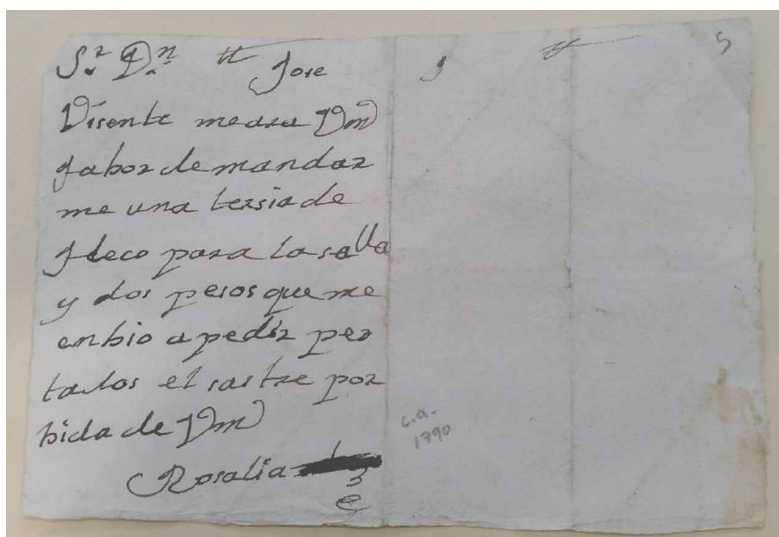 S.r D.n Jose
Visente meara Vm
fabor de mandar
me una tersia de
fleco para la salla
y dos pesos que me
enbio a pediz pes
tados el sastre por
bida de Vm
Rosalia
c.a.
1790
5